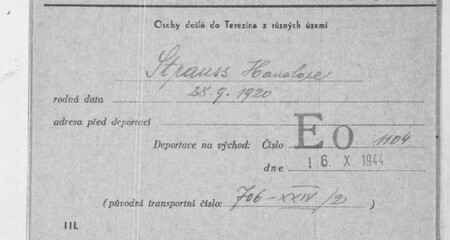 Osoby došlé do Terezína z různých území
Strauss Hanalore
rodná data 28.9.1920
adresa před deportací
Deportace na východ: Číslo Eo 1104
dne 16 X 1944
(původní transportní číslo: 706-XXIV/2)
III.